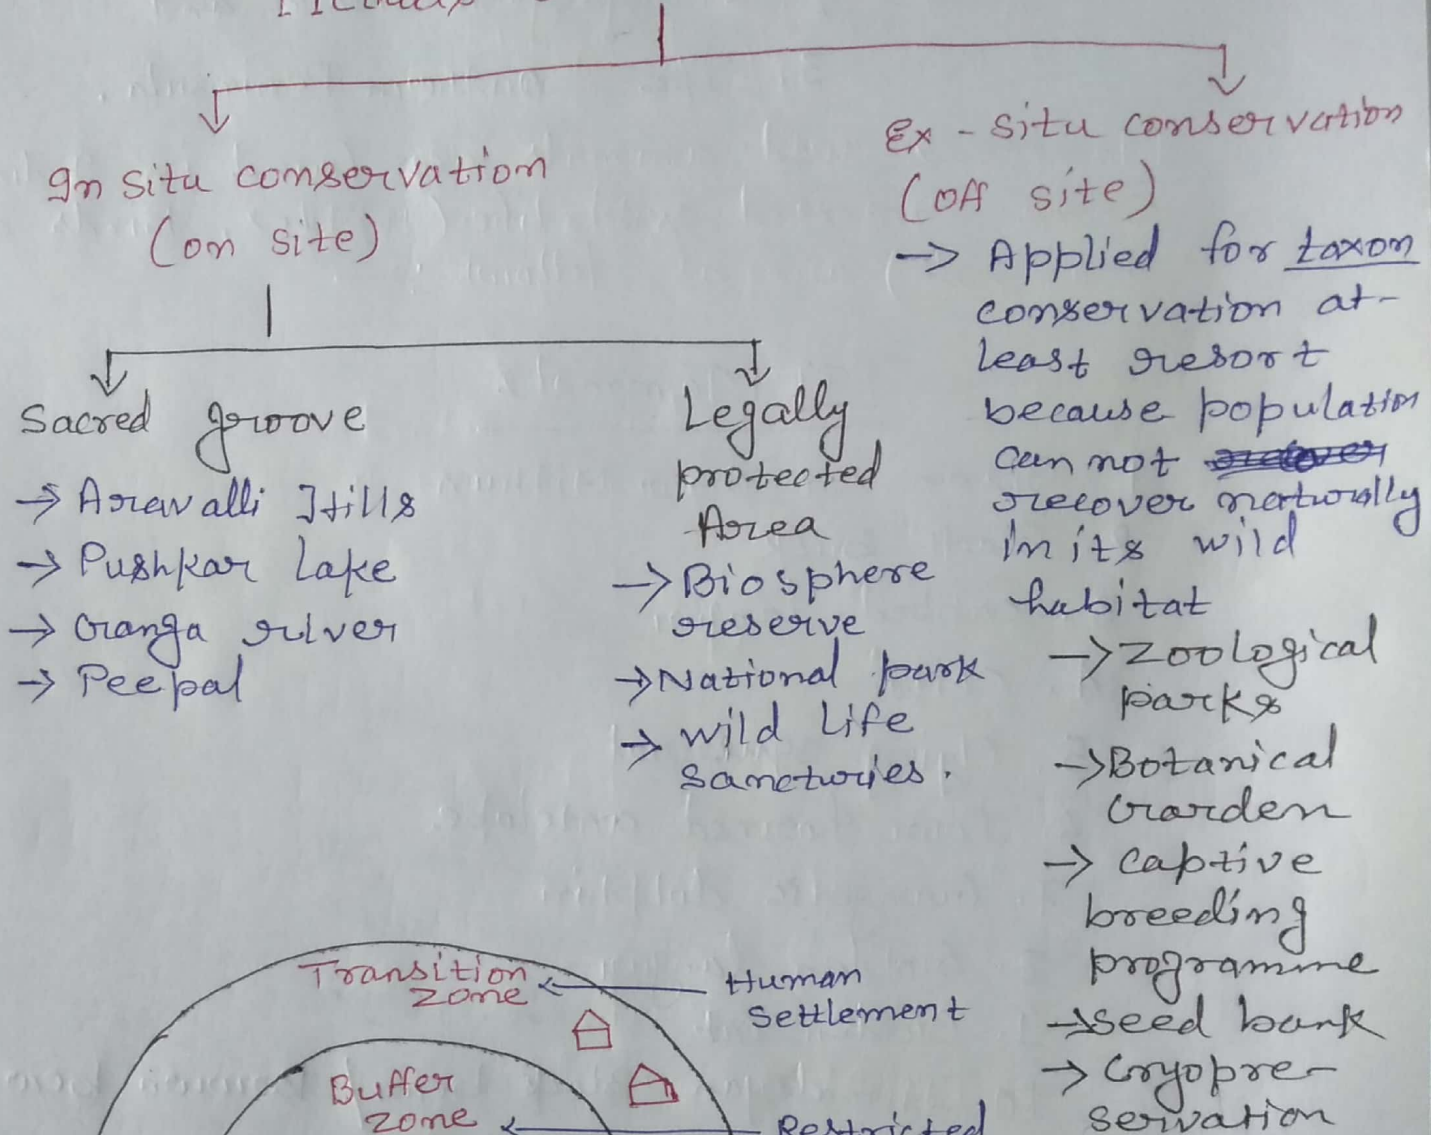 In situ conservation
(on site)
Ex-situ conservation
(off site)
Sacred groove
→ Aravalli Hills
→ Pushkar Lake
→ Ganga river
→ Peepal
Legally
protected
Area
→ Biosphere
reserve
→ National park
→ wild life
Sancturies.
→ Applied for taxon
conservation at-
least resort
because population
can not
recover naturally
in its wild
habitat
→ Zoological
parks
→ Botanical
Garden
→ Captive
breeding
programme
→ Seed bank
→ Cryopre-
servation
Transition
zone
Human
Settlement
Buffer
zone
Restricted